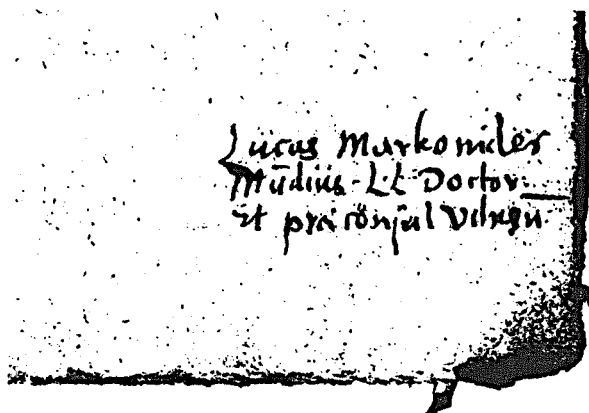 Lucas Markonides
Mūdius. LL Doctor.
Et præconsul Vilnen.